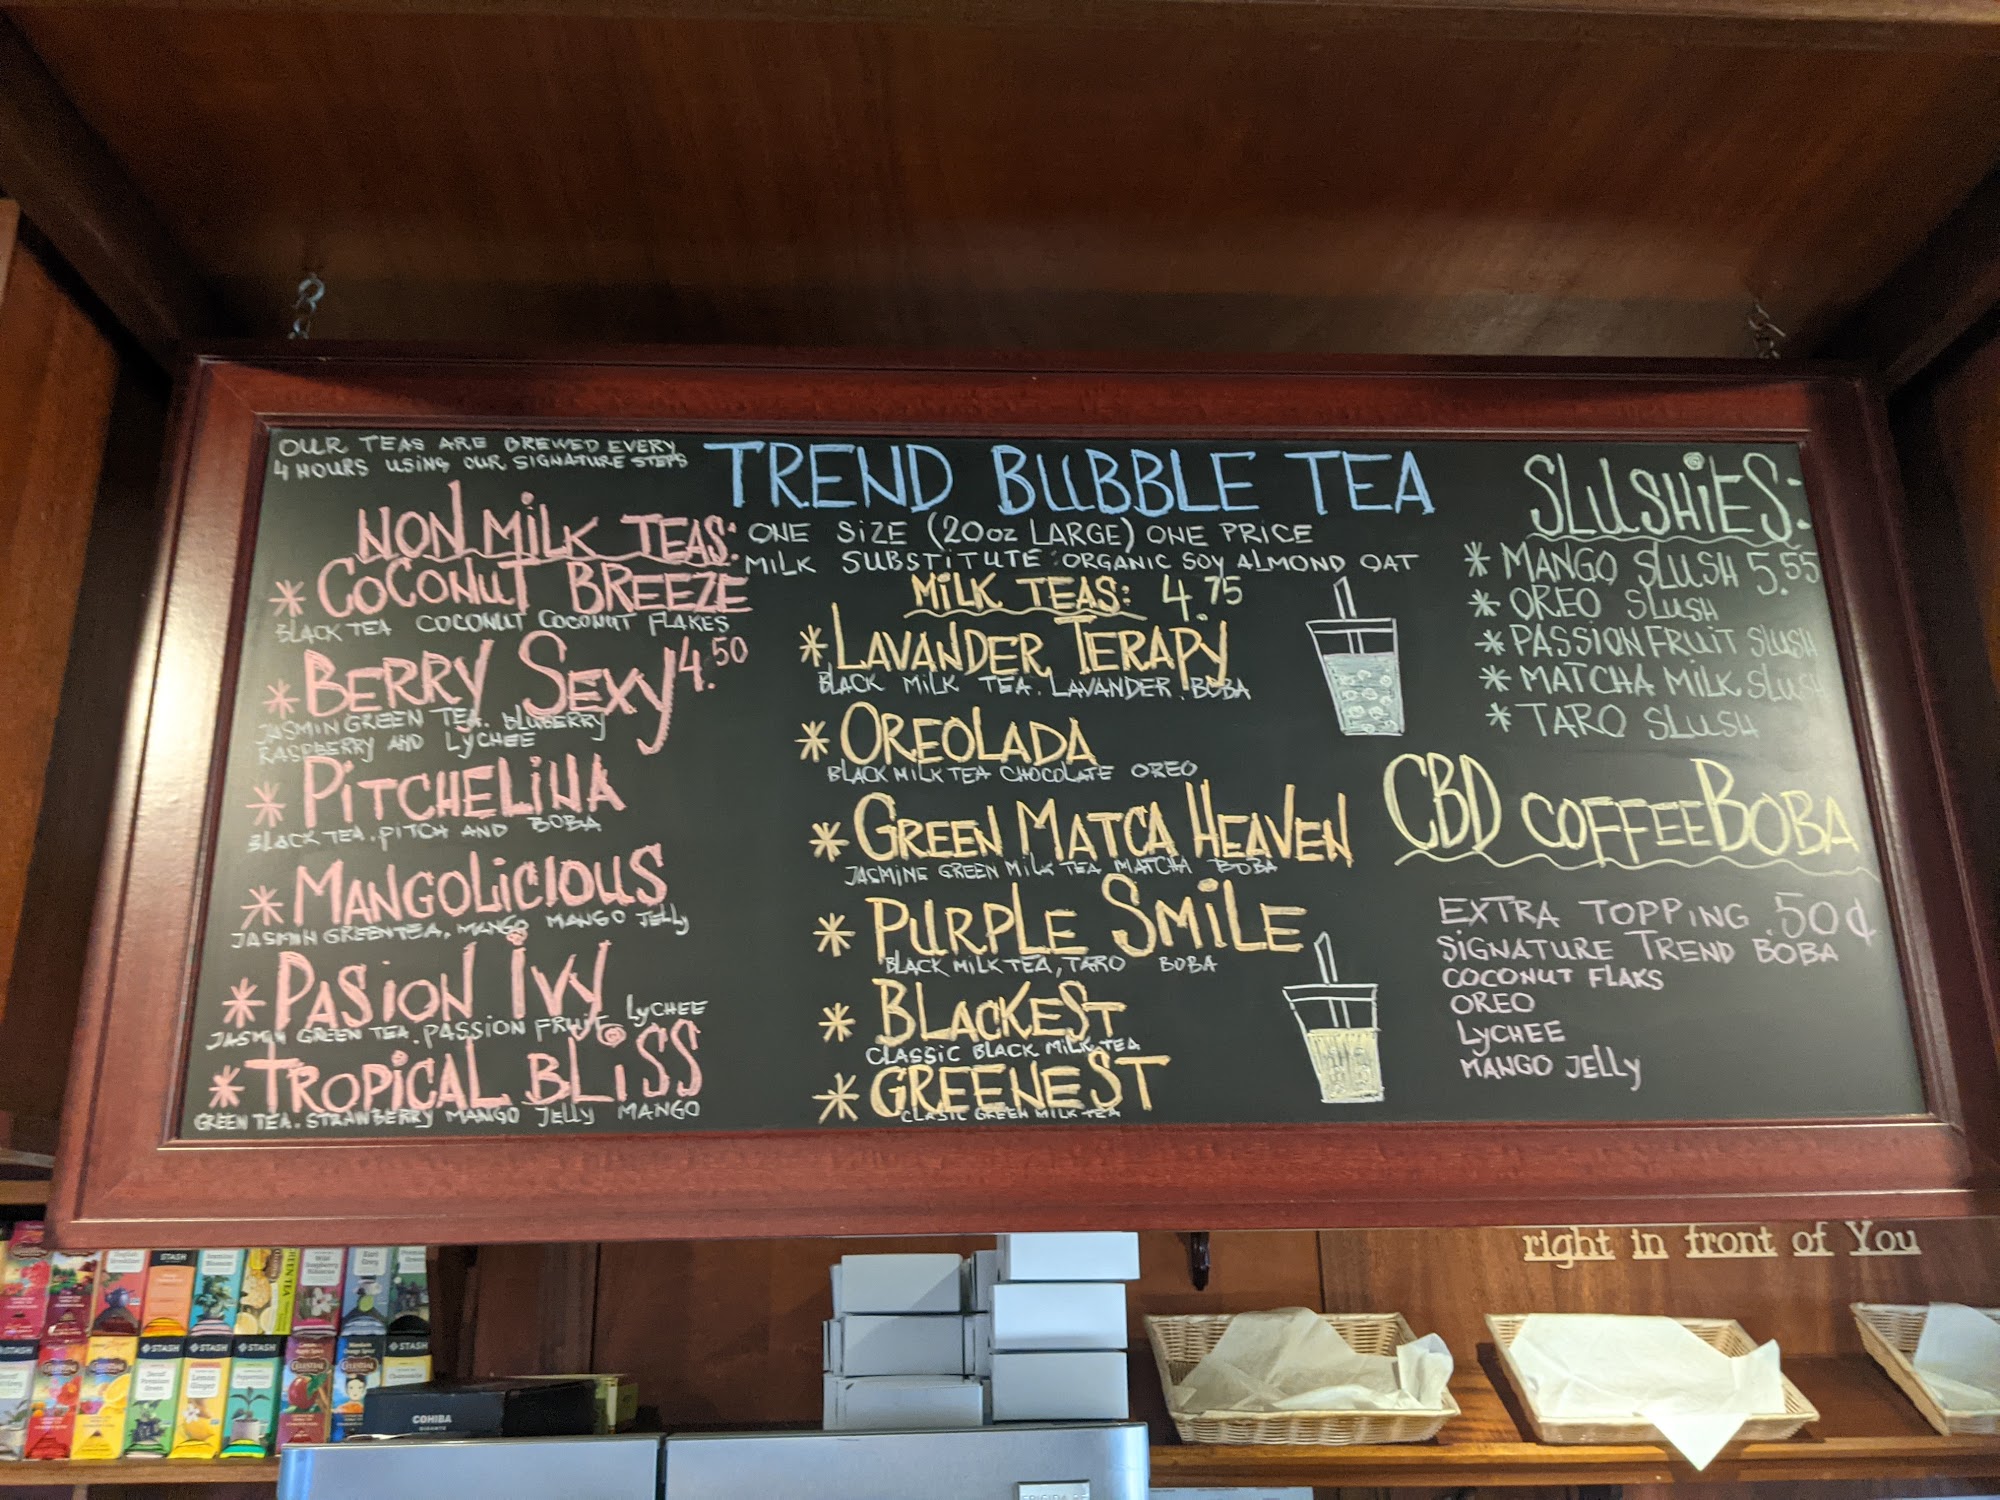 OUR TEAS ARE BREWED EVERY
4 HOURS USING OUR SIGNATURE STEPS
NON MiLK TEAS:
* COCONUT BREEZE
BLACK TEA COCONUT COCONUT FLAKES
* BERRY SEXY 4.50
JASMIN GREEN TEA. BLUBERRY
RASPBERRY AND LYCHEE
* PiTCHELiNA
BLACK TEA. PiTCH AND BOBA
* MANGOLiCiOUS
JASMIN GREEN TEA, MANGO MANGO JELLY
* PASiON IVY
JASMIN GREEN TEA. PASSION FRUiT. LYCHEE
* TROPiCAL BLiSS
GREEN TEA. STRAWBERRY MANGO JELLY MANGO
TREND BUBBLE TEA
ONE SIZE (20oz LARGE) ONE PRICE
MILK SUBSTITUTE: ORGANIC SOY ALMOND OAT
MiLK TEAS: 4.75
* LAVANDER TERAPY
BLACK MiLK TEA. LAVANDER. BOBA
* OREOLADA
BLACK MILK TEA CHOCOLATE OREO
* GREEN MATCA HEAVEN
JASMINE GREEN MiLK TEA MATCHA BOBA
* PURPLE SMiLE
BLACK MiLK TEA, TARO BOBA
* BLACKEST
CLASSIC BLACK MILK TEA
* GREENEST
CLASIC GREEN MILK TEA
SLUSHiES:
* MANGO SLUSH 5.55
* OREO SLUSH
* PASSION FRUiT SLUSH
* MATCHA MILK SLUSH
* TARO SLUSH
CBD COFFEE BOBA
EXTRA TOPPiNG .50¢
SiGNATURE TREND BOBA
COCONUT FLAKS
OREO
LYCHEE
MANGO JELLY
right in front of You
STASH
STASH
STASH
STASH
COHIBA